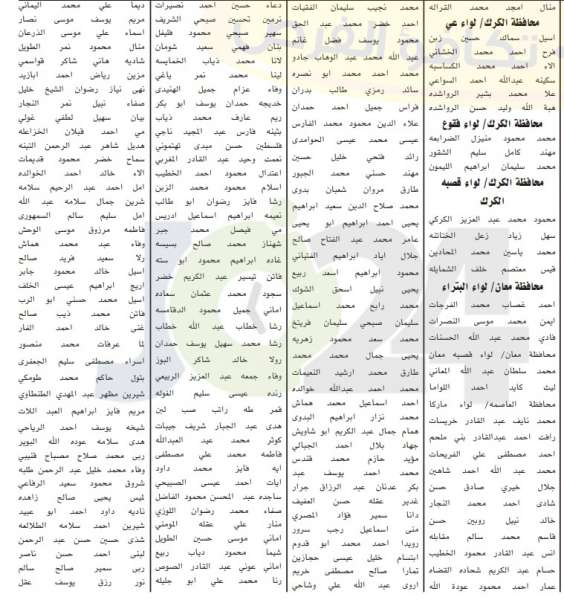 منال محمد امجد محمد القراله
محافظة الكرك/ لواء عي
اسيل سمالك حسين زين
فرح احمد محمد الخشاني
الاء احمد محمد الكساسبه
سكينه عبدالله احمد السواعي
علا محمد بشير الرواشده
هبة الله وليد حسن الرواشده
محافظة الكرك/ لواء فقوع
محمد محمود منيزل الضرابعه
مهند كامل سليم الشقور
محمد سليمان ابراهيم الليمون
محافظة الكرك/ لواء قصبه
الكرك
محمود محمد عبد العزيز الكركي
سهل زياد زعل الختاتنه
محمد ياسين محمد المحادين
قيس معتصم خلف الشمايله
محافظة معان/ لواء البتراء
احمد غصاب محمد الفرجات
ايمن محمد موسى النصرات
فادي محمد عبد الله الحسنات
محافظة معان/ لواء قصبه معان
محمد سلطان عبد الله المعاني
ليث كايد احمد اللواما
محافظة العاصمه/ لواء ماركا
محمد نايف عبد القادر خريسات
رافت احمد عبدالقادر بني ملحم
احمد مصطفى علي الفريحات
محمد عبد الله احمد شاهين
جلال خيري صادق حسن
شادي احمد محمد النجار
خالد نبيل روبين حسن
قاسم محمد سالم مقابله
انس عبد القادر محمود الخطيب
حسام عبد الكريم شحاده القضاه
عمار احمد محمود عودة الله
محمد نجيب سليمان الفقيات
احمد خضر محمد عبد الحق
محمود يوسف فضل غانم
عبد الله محمد عبد الوهاب جادو
محمد احمد محمد ابو نصره
سائد رمزي طالب بدران
فراس جميل احمد حمدان
علاء الدين محمود محمد الفارس
عيسى محمد عيسى الحوامدى
رائد فتحي خليل حسين
مهند حسني محمد الجبور
طارق مروان شعبان بدوى
محمد صلاح الدين سعيد ابراهيم
يحيى احمد ابراهيم ابو يحيى
عامر محمد عبد الفتاح صالح
جلال اياد ابراهيم الفتياني
محمود ابراهيم اسعد ربيع
يحيى نبيل اسحق الشوك
محمد رابح محمد اسماعيل
سليمان صبحي سليمان فريتخ
محمد سعد محمود زهريه
يحيى جمال محمد محمد
طارق محمد ارشيد النعيمات
محمد احمد عبدالله خوالده
احمد اسماعيل محمد هماش
محمد نزار ابراهيم البدوى
همام جمال عبد الكريم ابو شاويش
جهاد بلال احمد الجبالي
مؤيد حازم محمد فندس
محمد احمد يوسف عبد
بكر عدنان عبد الرزاق جرار
غدير عقله حسن العفيف
دانا سمير فؤاد المصري
منى اسماعيل رجب سرور
رويدا احمد محمد ابو قدوم
ابتسام خليل عيسى حجازين
تمارا صالح مصطفى خريم
اروى عبد الله علي وشاحي
دعاء حسين احمد نصيرات
نرمين تحسين صبحي الشريف
سهير صبحي محمود فليفل
بنان فهمي سعيد شومان
لانا محمد ذياب الخمايسه
لينا محمد نمر ياغي
وفاء عزام جميل الهنيدى
خديجه حمدان يوسف ابو بكر
ريم عارف محمد ذياب
بثينه فارس عبد المجيد ناجي
فلسطين حسن مبدى تهتموني
نعمت وحيد عبد القادر المغربي
اعتدال محمود احمد الخطيب
اسلام محمود محمد الزبن
رشا فايز رضوان ابو طالب
نعيمه ابراهيم اسماعيل ادريس
مي فيصل محمد جبر
شهناز محمد صالح بسيسه
غاده ابراهيم محمود ابو سته
فاتن تيسير عبد الكريم خضر
سجود محمد عثمان سعاده
اماني جميل محمود الدقامسه
رشا خطاب عبد الله خطاب
رشا محمد سهيل يوسف حمدان
رولا خالد شاكر البوز
وفاء جمعه عبد العزيز الربيعي
رنده عيسى سليم الغوله
قمر طه راتب صب لبن
هدى عبد الجبار شريف جيبات
كوثر محمد عبد العبدالله
فاطمه محمد علي مصطفى
ايه فايز محمد داود
ايات احمد عيسى الصبيحي
ساجده عبد المحسن محمود الفاضل
صفاء محمد رضوان اللوزي
منار علي عقله المومني
اماني موسى حسين الطويل
شيما محمود ذياب ربيع
اماني عوني عبد القادر الصوص
رنا محمد علي ابو جليله
ديما علي محمد اليماني
مريم يوسف موسى نصار
اسماء علي موسى الذرعان
منال محمود نمر الطويل
شاديه هاني شاكر قواسمي
مزين رياض احمد ابازيد
نهى نياز رضوان الشيخ خليل
صفاء نبيل نمر النجار
بيان سهيل لطفي غولي
مي احمد قبلان الخزاعله
هديل شاهر عبد الرحمن التينه
سماح خضر محمود قديمات
الاء خالد احمد الخوالده
امل احمد عبد الرحيم سلامه
شرين جمال سلامه عبد الله
امل سليم سالم السمهوري
فاطمه مرزوق موسى الوحش
وفاء عبد محمد هماش
رلا سعيد فريد صالح
اسيل خالد محمود جابر
اريج ابراهيم عيسى الخلف
اسيل محمد حسني ابو الرب
فاتن محمد ذيب صالح
غنى خالد احمد الفار
لنا عرفات محمد منصور
اسراء مصطفى سليم الجعفرى
بتول حاكم محمد طومكي
شيرين مظهر عبد المهدي الطنطاوي
مريم فايز ابراهيم العبد اللات
شيخه يوسف احمد الرياحي
هدى سلامه عوده الله البوير
ربى محمد صلاح مصباح قتيبي
وفاء محمد خليل عبد الرحمن طلبه
شروق محمود سعيد الرفاعي
ليس يحيى صالح زاهده
ناديه داود احمد ابو عبيد
شيرين احمد سلامه الطلالعه
شذى حسين حسن عبد الرحمن
لبنى احمد حسن ناصر
ربى سمير صالح سالم
نور رزق يوسف عقل